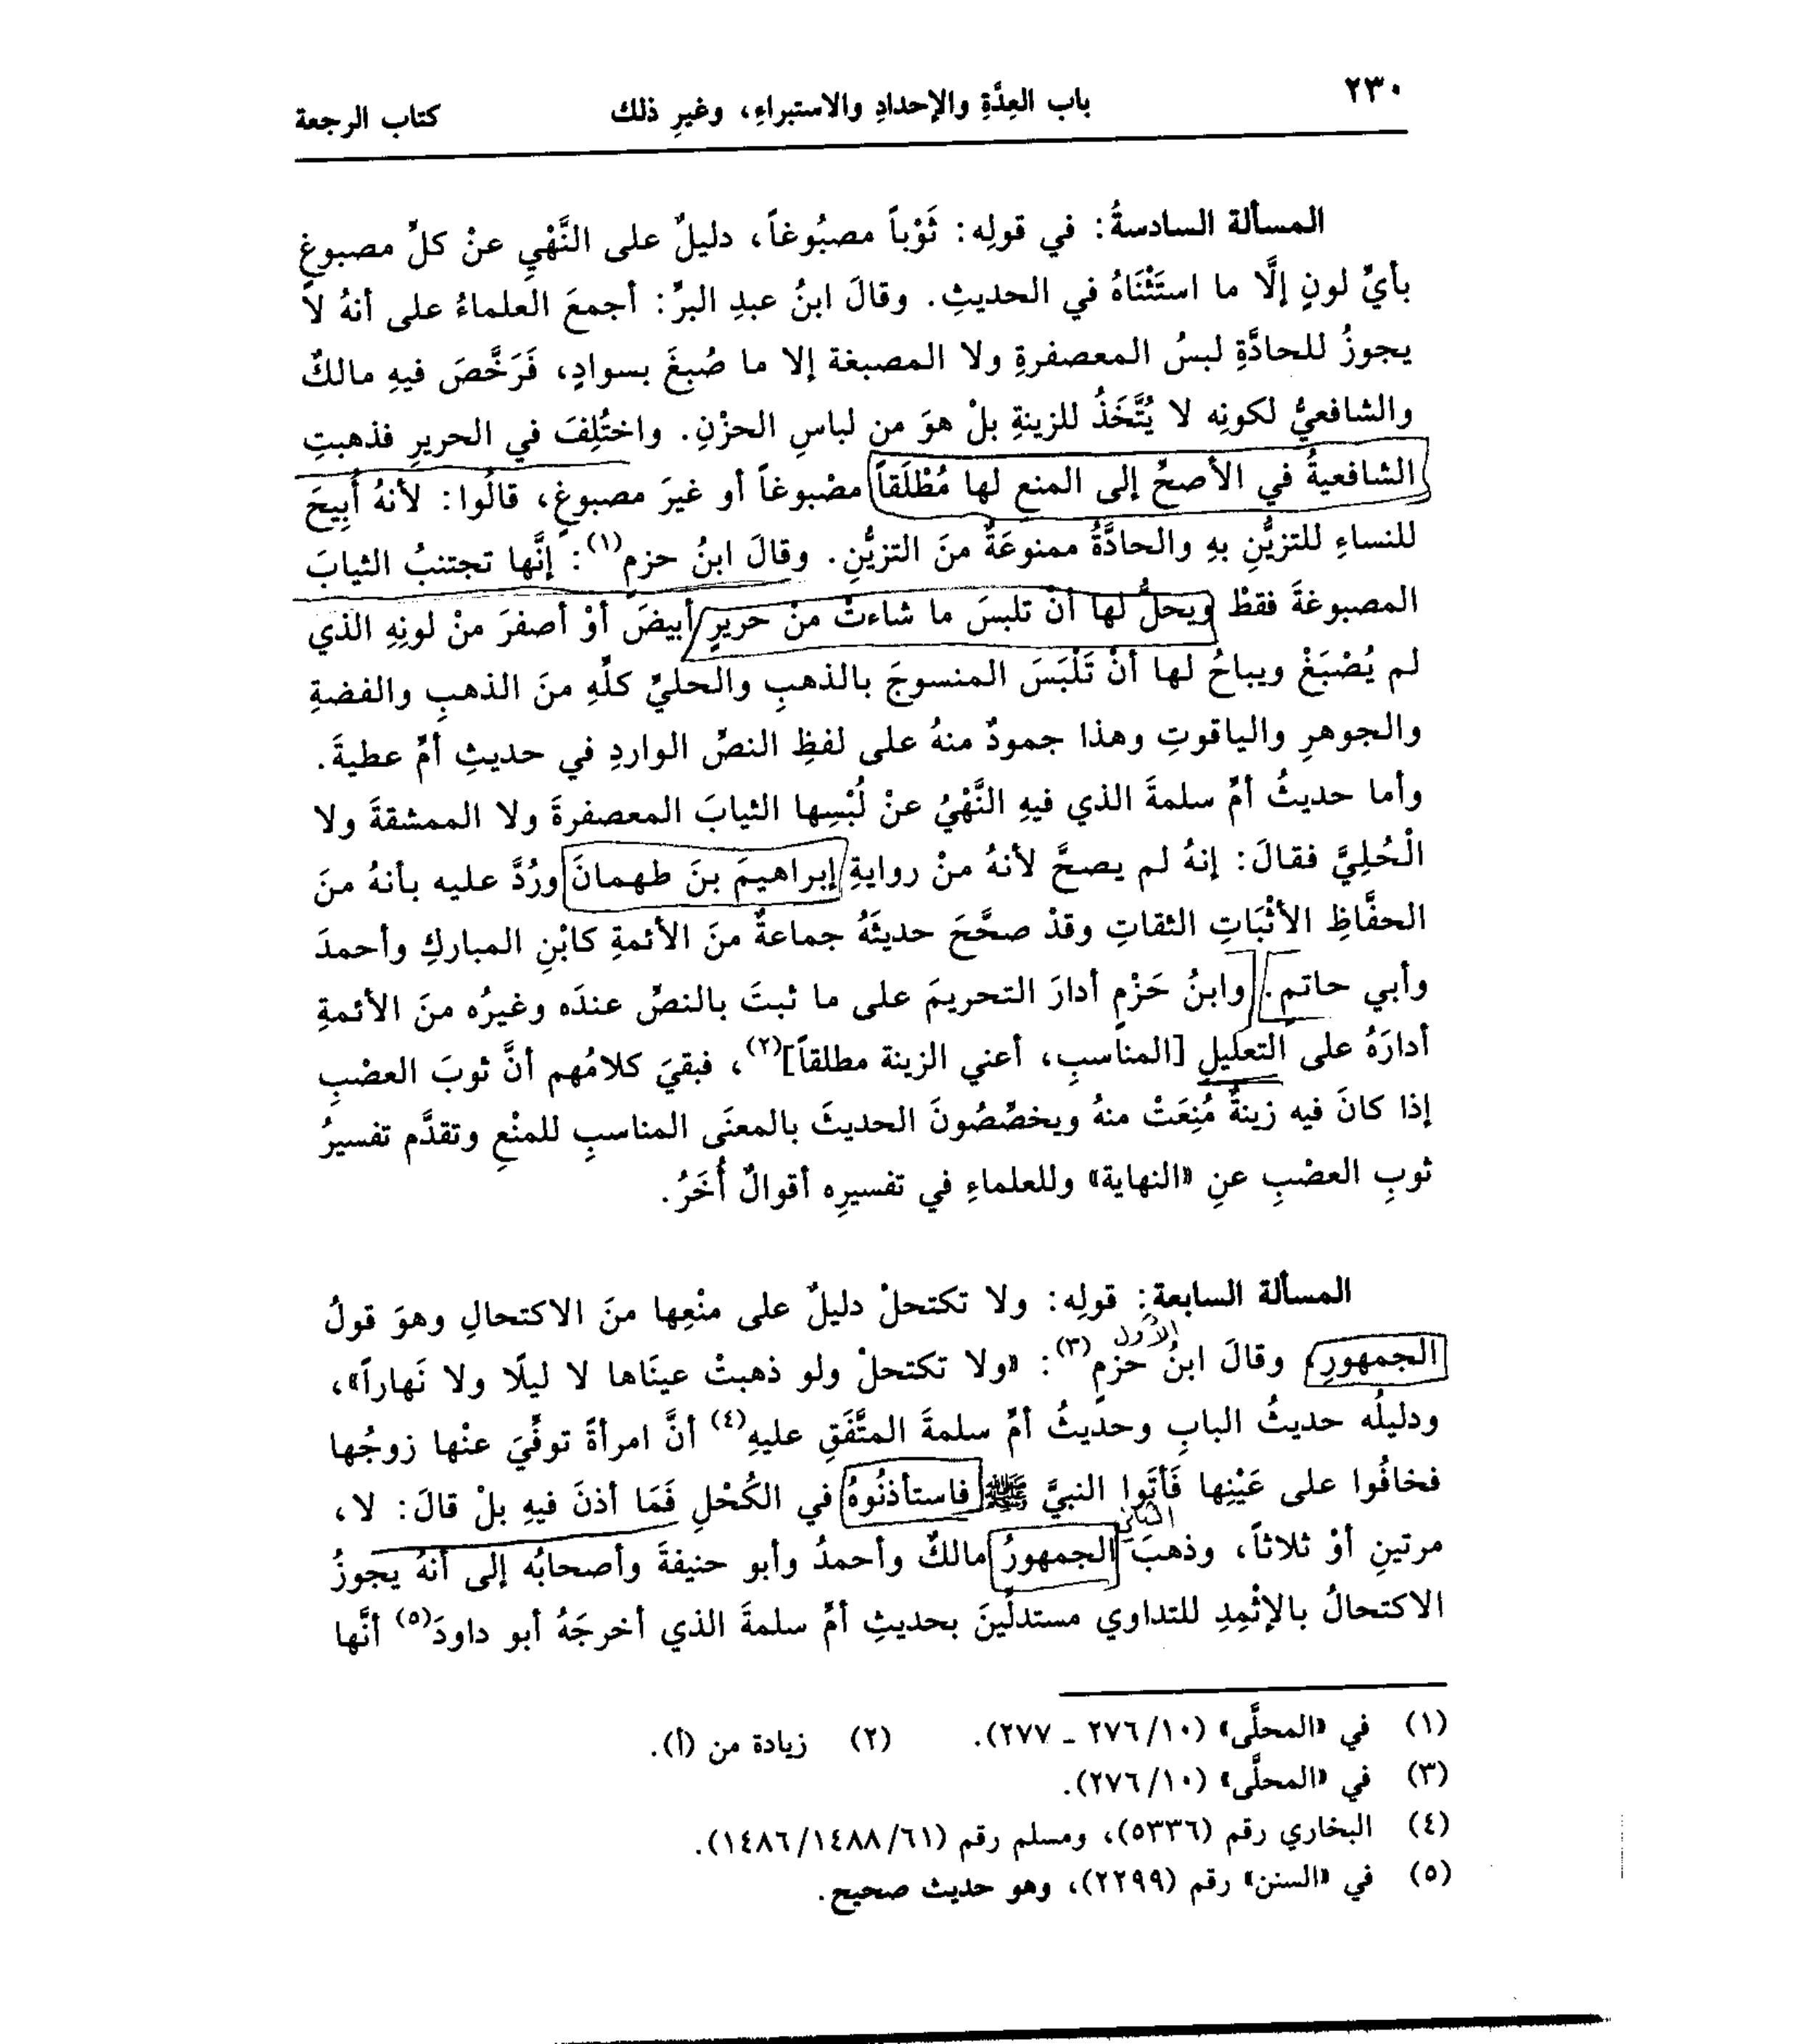 ٢٣٠ باب العِدَّةِ والإحدادِ والاستبراءِ، وغيرِ ذلك كتاب الرجعة
المسألة السادسةُ: في قولِه: ثَوْباً مصبُوغاً، دليلٌ على النَّهْيِ عنْ كلِّ مصبوغٍ
بأيِّ لونٍ إلَّا ما استَثْنَاهُ في الحديثِ. وقالَ ابنُ عبدِ البرِّ: أجمعَ العلماءُ على أنهُ لا
يجوزُ للحادَّةِ لبسُ المعصفرةِ ولا المصبغة إلا ما صُبِغَ بسوادٍ، فَرَخَّصَ فيهِ مالكٌ
والشافعيُّ لكونِه لا يُتَّخَذُ للزينةِ بلْ هوَ من لباسِ الحزْنِ. واختُلِفَ في الحريرِ فذهبتِ
الشافعيةُ في الأصحِّ إلى المنعِ لها مُطْلَقاً مصْبوغاً أو غيرَ مصبوغٍ، قالُوا: لأنهُ أُبِيحَ
للنساءِ للتزيُّنِ بهِ والحادَّةُ ممنوعَةٌ منَ التزيُّنِ. وقالَ ابنُ حزمٍ(١): إنَّها تجتنبُ الثيابَ
المصبوغةَ فقطْ ويحلُّ لها أنْ تلبسَ ما شاءتْ منْ حريرٍ أبيضَ أوْ أصفرَ منْ لونِهِ الذي
لم يُصْبَغْ ويباحُ لها أنْ تَلْبَسَ المنسوجَ بالذهبِ والحليِّ كلِّهِ منَ الذهبِ والفضةِ
والجوهرِ والياقوتِ وهذا جمودٌ منهُ على لفظِ النصِّ الواردِ في حديثِ أمِّ عطيةَ.
وأما حديثُ أمِّ سلمةَ الذي فيهِ النَّهْيُ عنْ لُبْسِها الثيابَ المعصفرةَ ولا الممشقةَ ولا
الْحُلِيَّ فقالَ: إنهُ لم يصحَّ لأنهُ منْ روايةِ إبراهيمَ بنَ طهمانَ ورُدَّ عليه بأنهُ منَ
الحفَّاظِ الأثْبَاتِ الثقاتِ وقدْ صحَّحَ حديثَهُ جماعةٌ منَ الأئمةِ كابْنِ المباركِ وأحمدَ
وأبي حاتم. وابنُ حَزْمٍ أدارَ التحريمَ على ما ثبتَ بالنصِّ عندَه وغيرُه منَ الأئمةِ
أدارَهُ على التعليلِ [المناسبِ، أعني الزينة مطلقاً](٢)، فبقيَ كلامُهم أنَّ ثوبَ العصْبِ
إذا كانَ فيه زينةٌ مُنِعَتْ منهُ ويخصِّصُونَ الحديثَ بالمعنَى المناسبِ للمنْعِ وتقدَّم تفسيرُ
ثوبِ العصْبِ عنِ «النهاية» وللعلماءِ في تفسيرِه أقوالٌ أُخَرُ.
المسألة السابعة: قولِه: ولا تكتحلْ دليلٌ على منْعِها منَ الاكتحالِ وهوَ قولُ
الأول
الجمهورِ، وقالَ ابنُ حزمٍ(٣): «ولا تكتحلْ ولو ذهبتْ عينَاها لا ليلًا ولا نَهاراً»،
ودليلُه حديثُ البابِ وحديثُ أمِّ سلمةَ المتَّفَقِ عليهِ(٤) أنَّ امرأةً توفِّيَ عنْها زوجُها
فخافُوا على عَيْنِها فَأتَوا النبيَّ ﷺ فاستأذنُوهُ في الكُحْلِ فَمَا أذنَ فيهِ بلْ قالَ: لا،
الثاني
مرتينِ أوْ ثلاثاً، وذهبَ الجمهورُ مالكٌ وأحمدُ وأبو حنيفةَ وأصحابُه إلى أنهُ يجوزُ
الاكتحالُ بالإثْمِدِ للتداوي مستدلِّينَ بحديثِ أمِّ سلمةَ الذي أخرجَهُ أبو داودَ(٥) أنَّها
(١) في «المحلَّى» (١٠/٢٧٦ ـ ٢٧٧). (٢) زيادة من (أ).
(٣) في «المحلَّى» (١٠/٢٧٦).
(٤) البخاري رقم (٥٣٣٦)، ومسلم رقم (١٤٨٦/١٤٨٨/٦١).
(٥) في «السنن» رقم (٢٢٩٩)، وهو حديث صحيح.